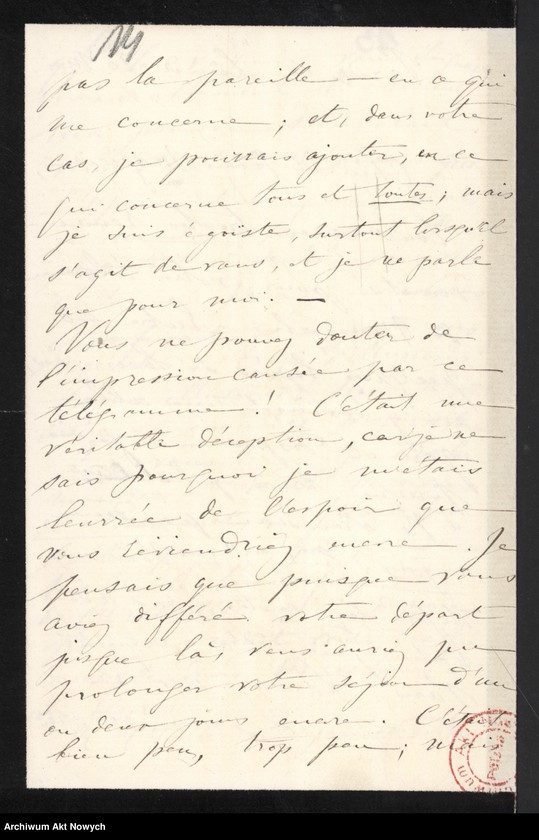 14
pas la pareille — en ce qui
me concerne ; et, dans votre
cas, je pourrais ajouter, en ce
qui concerne tous et toutes ; mais
je suis égoïste, surtout lorsqu'il
s'agit de vous, et je ne parle
que pour moi. —
Vous ne pouvez douter de
l'impression causée par ce
télégramme ! C'était une
véritable déception, car je ne
sais pourquoi je m'étais
leurrée de l'espoir que
vous reviendriez encore. Je
pensais que puisque vous
aviez différé votre départ
jusque là, vous auriez pu
prolonger votre séjour d'un
ou deux jours encore. C'était
bien peu, trop peu ; mais
Archiwum Akt Nowych